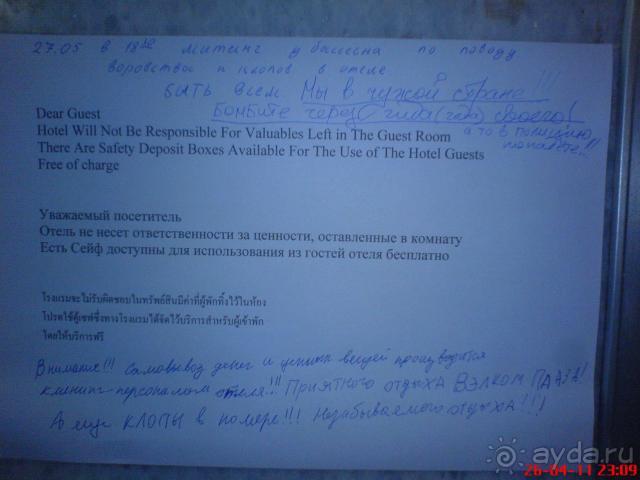 27.05 в 18:00 митинг у бассейна по поводу
воровства и клопов в отеле
БЫТЬ всем Мы в чужой стране!!!
Бомбите через гида (гада) своего!
а то в полицию
попадёте!!!
Dear Guest
Hotel Will Not Be Responsible For Valuables Left in The Guest Room
There Are Safety Deposit Boxes Available For The Use of The Hotel Guests
Free of charge
Уважаемый посетитель
Отель не несет ответственности за ценности, оставленные в комнату
Есть Сейф доступны для использования из гостей отеля бесплатно
โรงแรมจะไม่รับผิดชอบในทรัพย์สินมีค่าที่ผู้พักทิ้งไว้ในห้อง
โปรดใช้ตู้เซฟซึ่งทางโรงแรมได้จัดไว้บริการสำหรับผู้เข้าพัก
โดยให้บริการฟรี
Внимание!!! Самовывоз денег и ценных вещей производится
клининг-персоналом отеля!!! Приятного отдыха ВЭЛКОМ ПАДЗА!
А еще КЛОПЫ в номере!!! Незабываемого отдыха!!!
ayda.ru
26-04-11 23:09